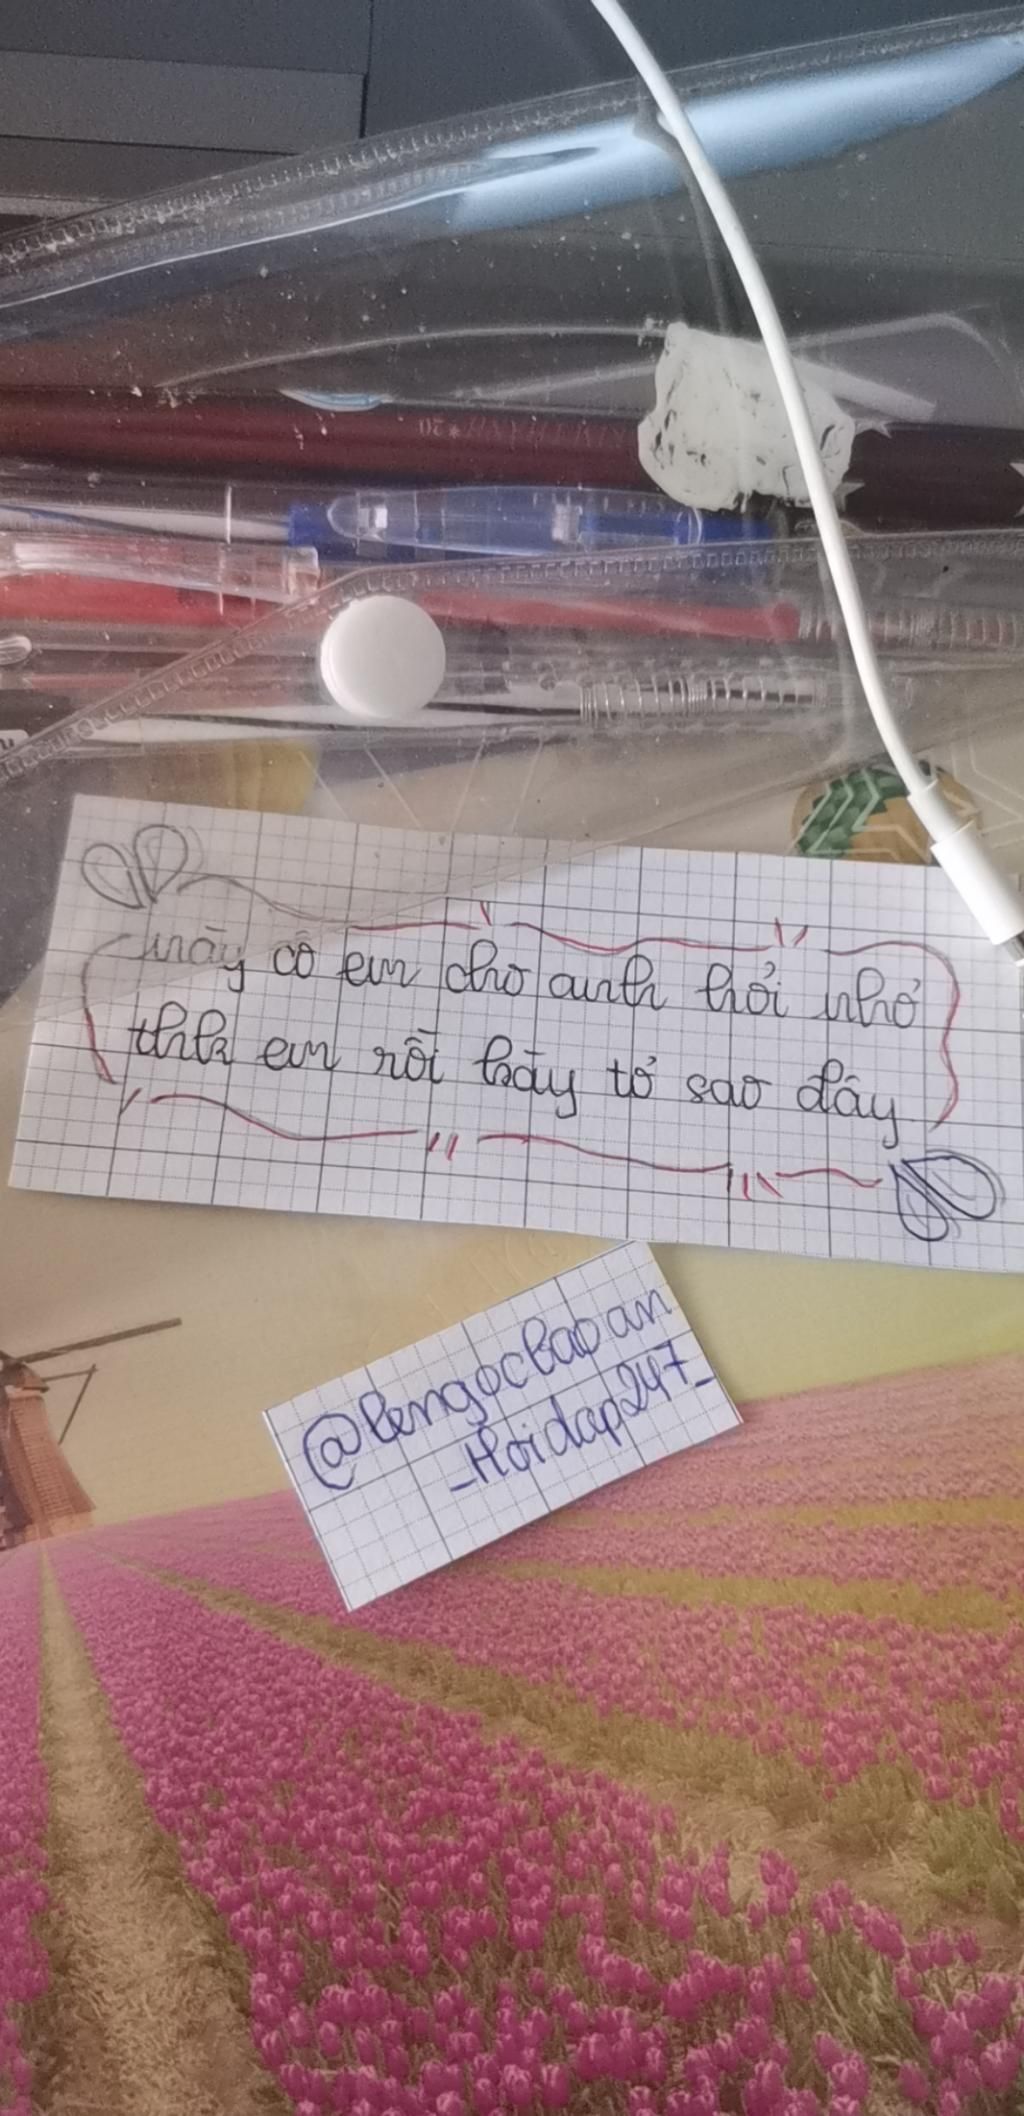 này cô em cho anh hỏi nhỏ
thik em rồi hãy tỏ sao đây
@lengocbaoan
_Hoidap247_